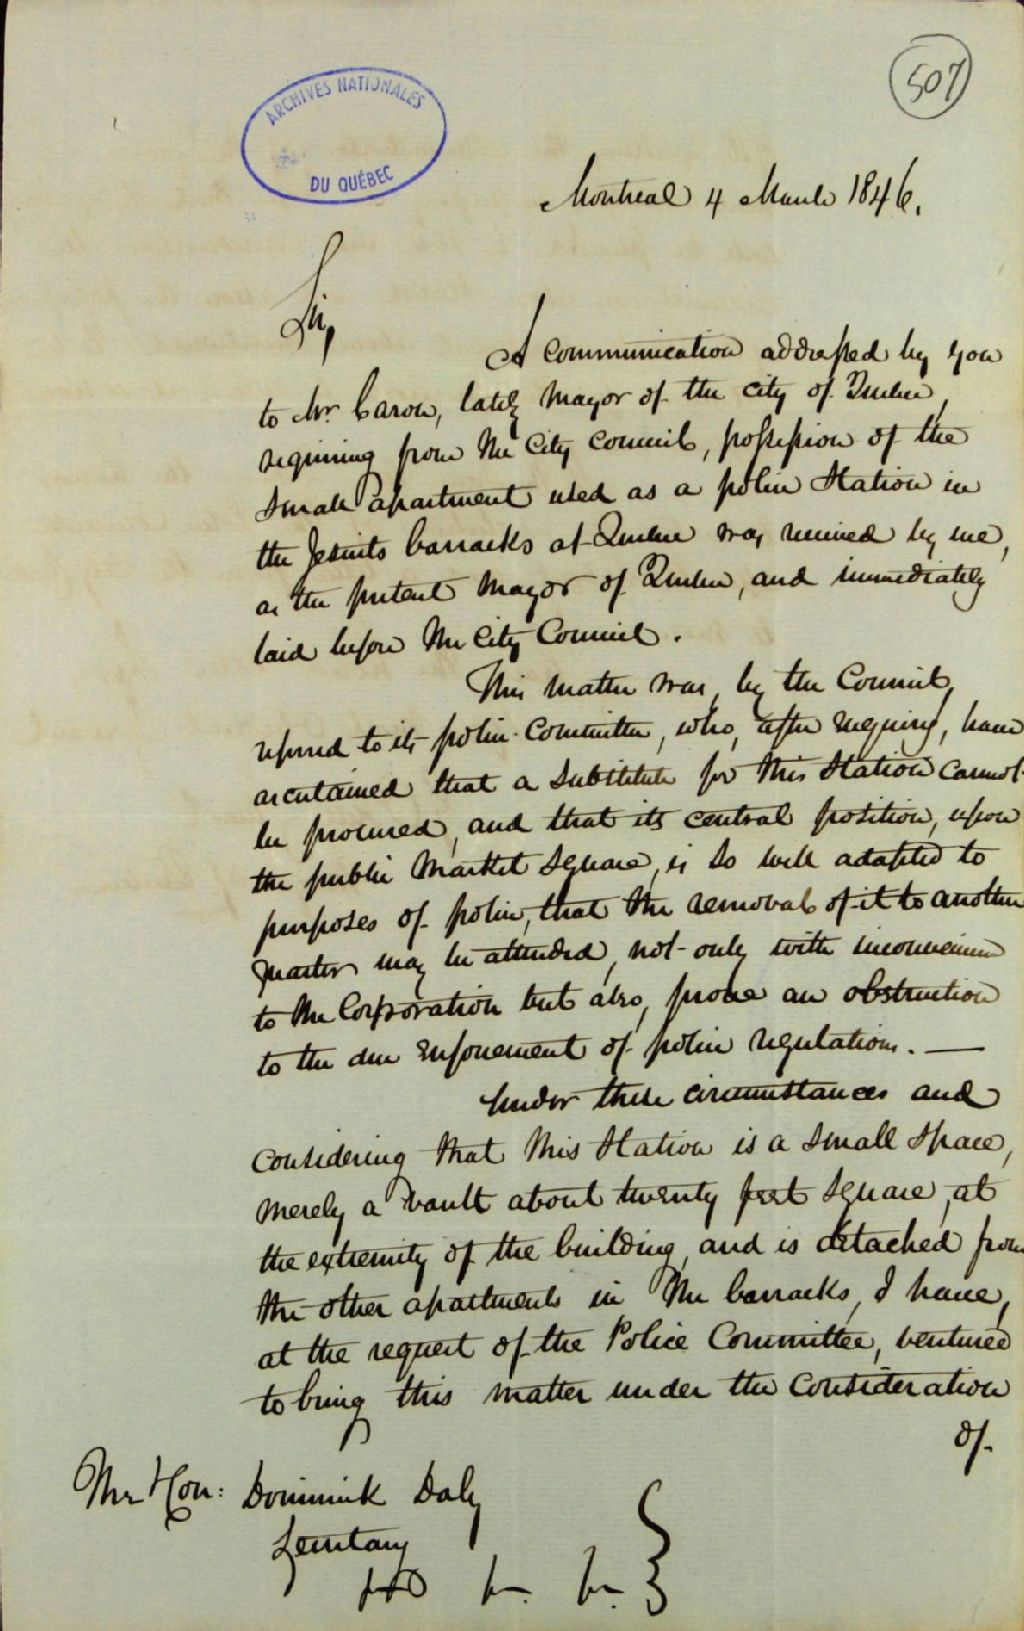 507
ARCHIVES NATIONALES
DU QUÉBEC
Montreal 4 March 1846.
Sir,
A communication addressed by you
to Mr Caron, lately Mayor of the City of Quebec,
requiring from the City Council, possession of the
small apartment used as a police Station in
the Jesuits barracks at Quebec was received by me,
as the present Mayor of Quebec, and immediately
laid before the City Council.
This matter was, by the Council,
referred to its police Committee, who, after enquiry, have
ascertained that a substitute for this Station cannot
be procured, and that its central position, upon
the public Market Square, is so well adapted to
purposes of police, that the removal of it to another
quarter may be attended, not only with inconvenience
to the Corporation but also, prove an obstruction
to the due enforcement of police regulations. —
Under these circumstances and
considering that this Station is a small space,
merely a vault about twenty feet square, at
the extremity of the building, and is detached from
the other apartments in the barracks, I have,
at the request of the Police Committee, ventured
to bring this matter under the consideration
of
The Hon: Dominick Daly
Secretary